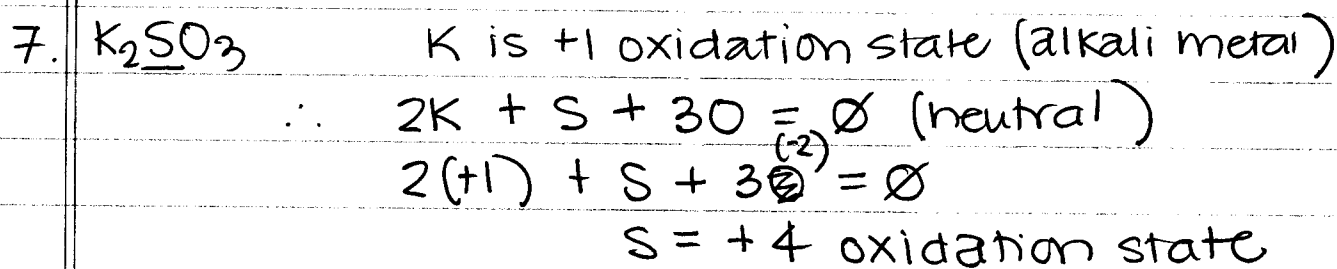 7. K₂SO₃ K is +1 oxidation state (alkali metal)
∴ 2K + S + 3O = Ø (neutral)
2(+1) + S + 3(-2) = Ø
S = +4 oxidation state